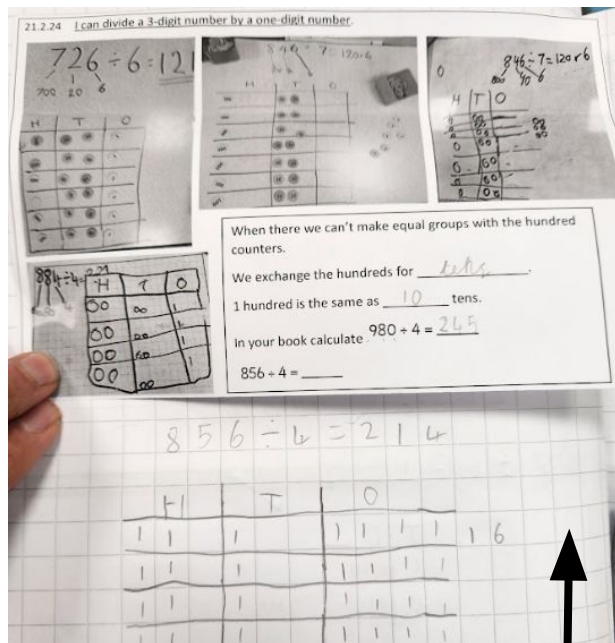 21.2.24 I can divide a 3-digit number by a one-digit number.
726 ÷ 6 = 121
700 20 6
H T O
846 ÷ 7 = 120r6
H T O
846 ÷ 7 = 120r6
800 40 6
H T O
884 ÷ 4 = 221
H T O
When there we can't make equal groups with the hundred
counters.
We exchange the hundreds for tens.
1 hundred is the same as 10 tens.
In your book calculate 980 ÷ 4 = 245
856 ÷ 4 =
856 ÷ 4 = 214
H T O
1 1 1 1 1 1 1 16
1 1 1 1 1 1 1
1 1 1 1 1 1 1
1 1 1 1 1 1 1